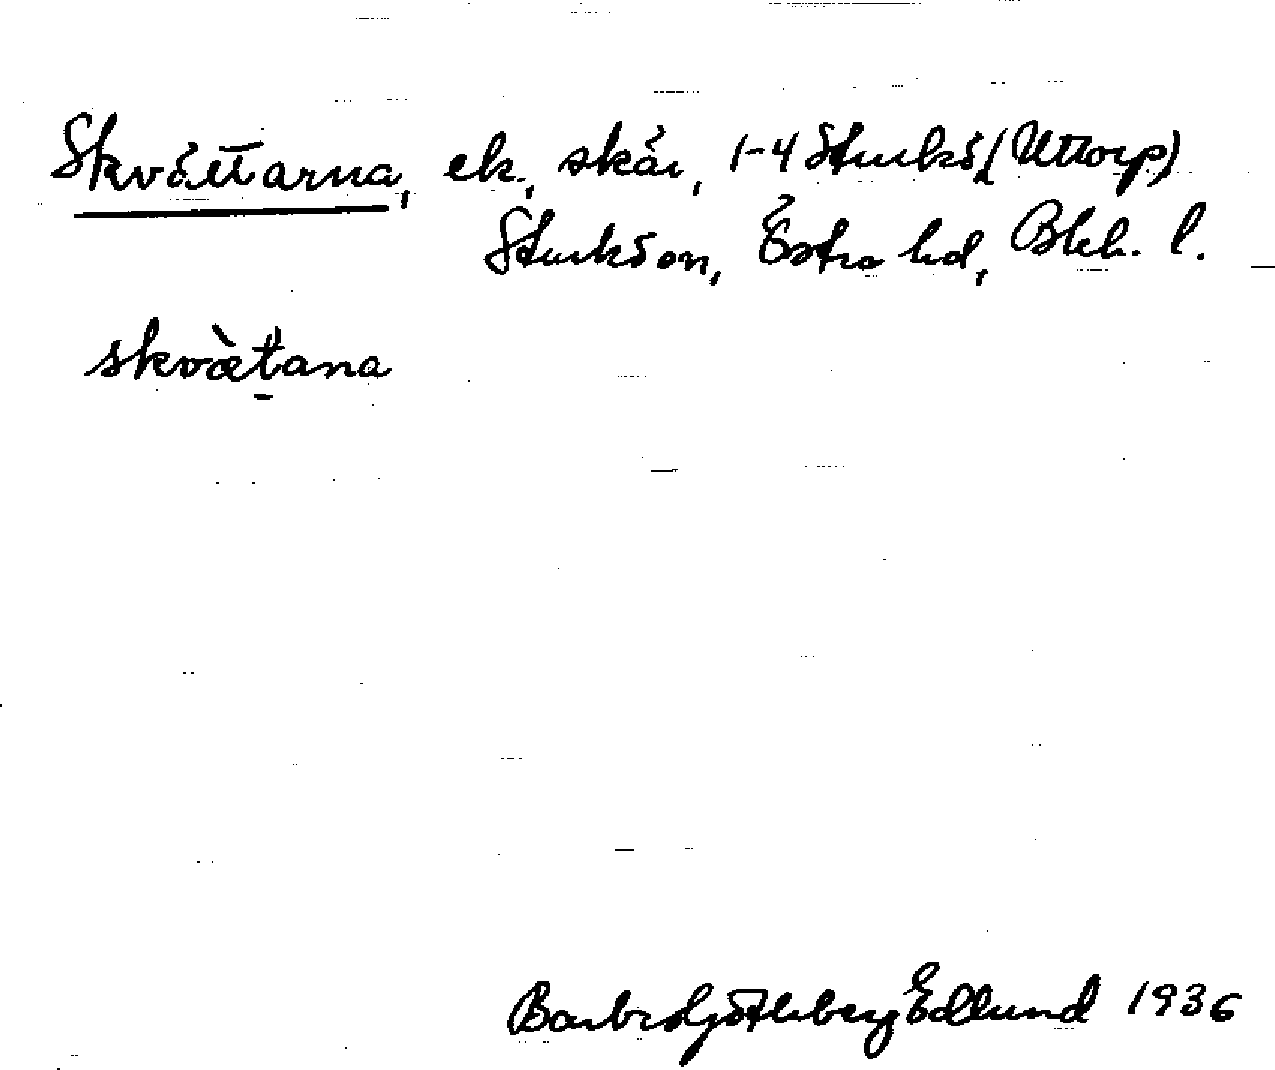 Skvättarna, ek., skär, 1-4 Sturkö (Uttorp)
Sturkö sn, Östra hd, Blek. l.
skvæ̀ṯana
Barbro Götheberg Edlund 1936